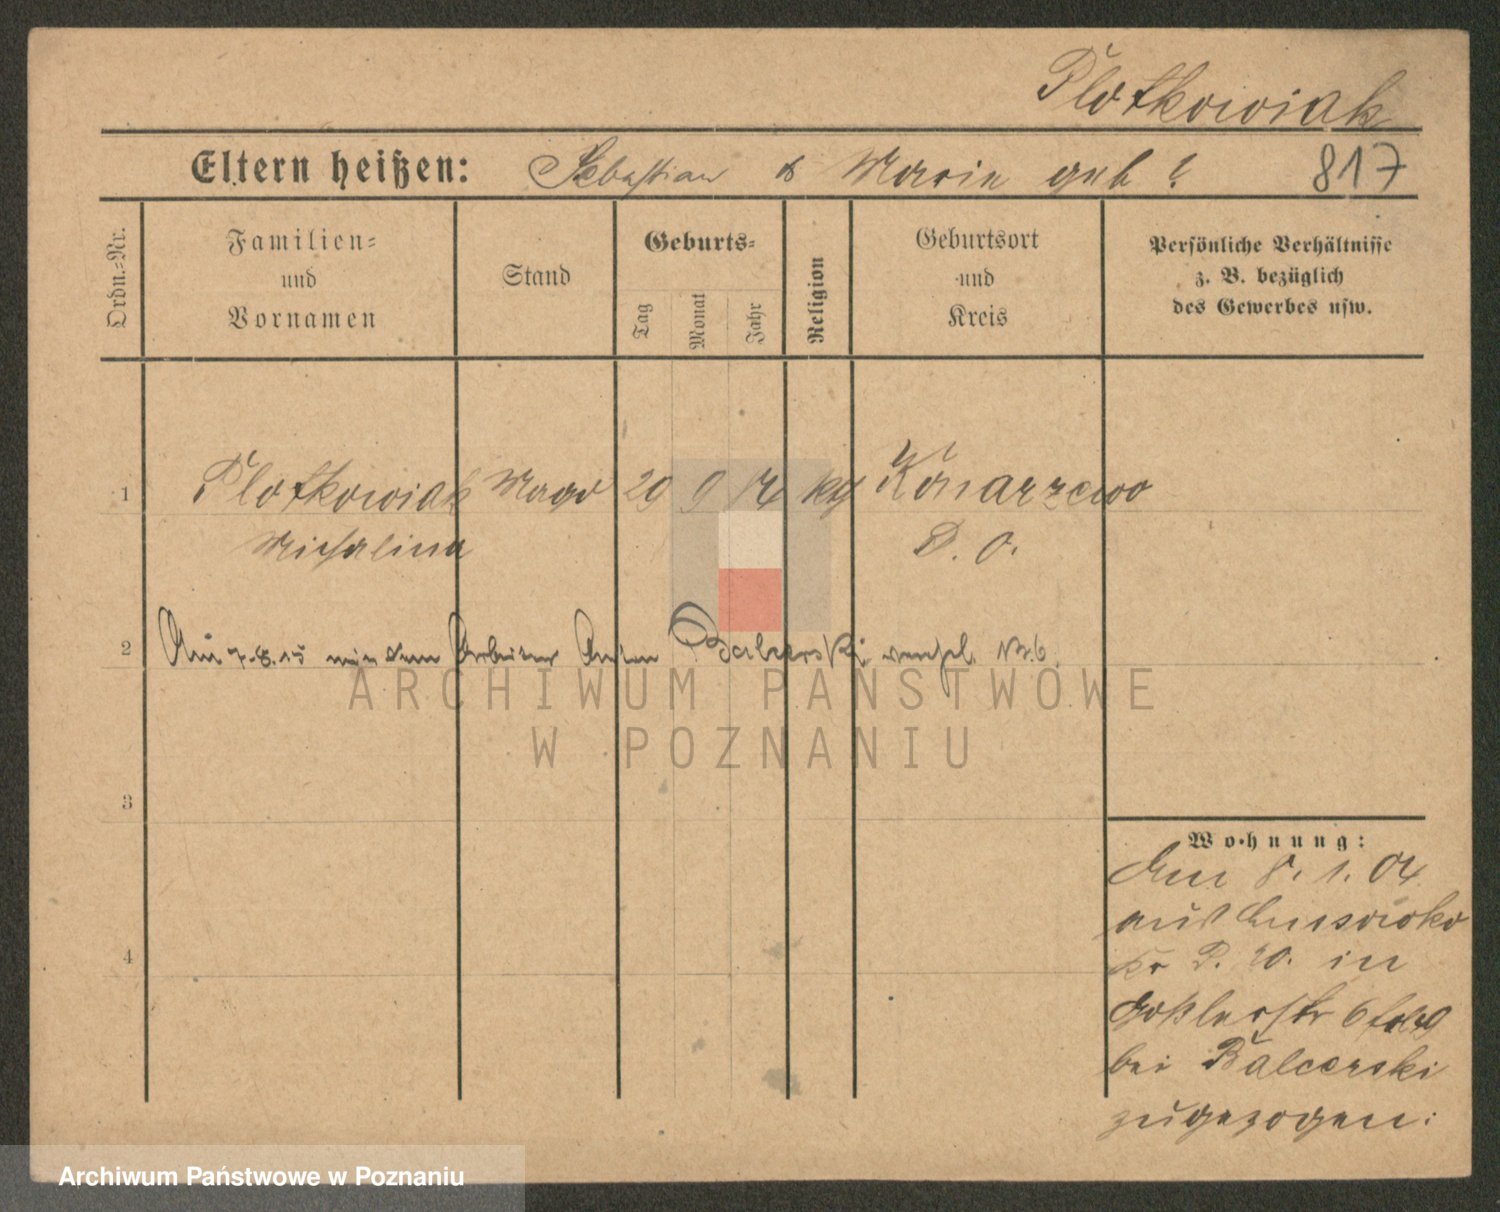 Plotkowiak
Eltern heißen: Sebastian & Marie geb ? 817
Ordn.=Nr.
Familien=
und
Vornamen
Stand
Geburts=
Tag
Monat
Jahr
Religion
Geburtsort
und
Kreis
Persönliche Verhältnisse
z. B. bezüglich
des Gewerbes usw.
1 Plotkowiak Magd 29 9 kth Konarzewo
Michalina P. O.
2 Am 7.8.15 mit dem Arbeiter Anton Balzerski verehel. Nr. 6
ARCHIWUM PAŃSTWOWE
W POZNANIU
3
4
Wohnung:
Am 8. 1. 04
aus
Kr P. W. in
Goßlerstr 6
bei Balcerski
zugezogen.
Archiwum Państwowe w Poznaniu